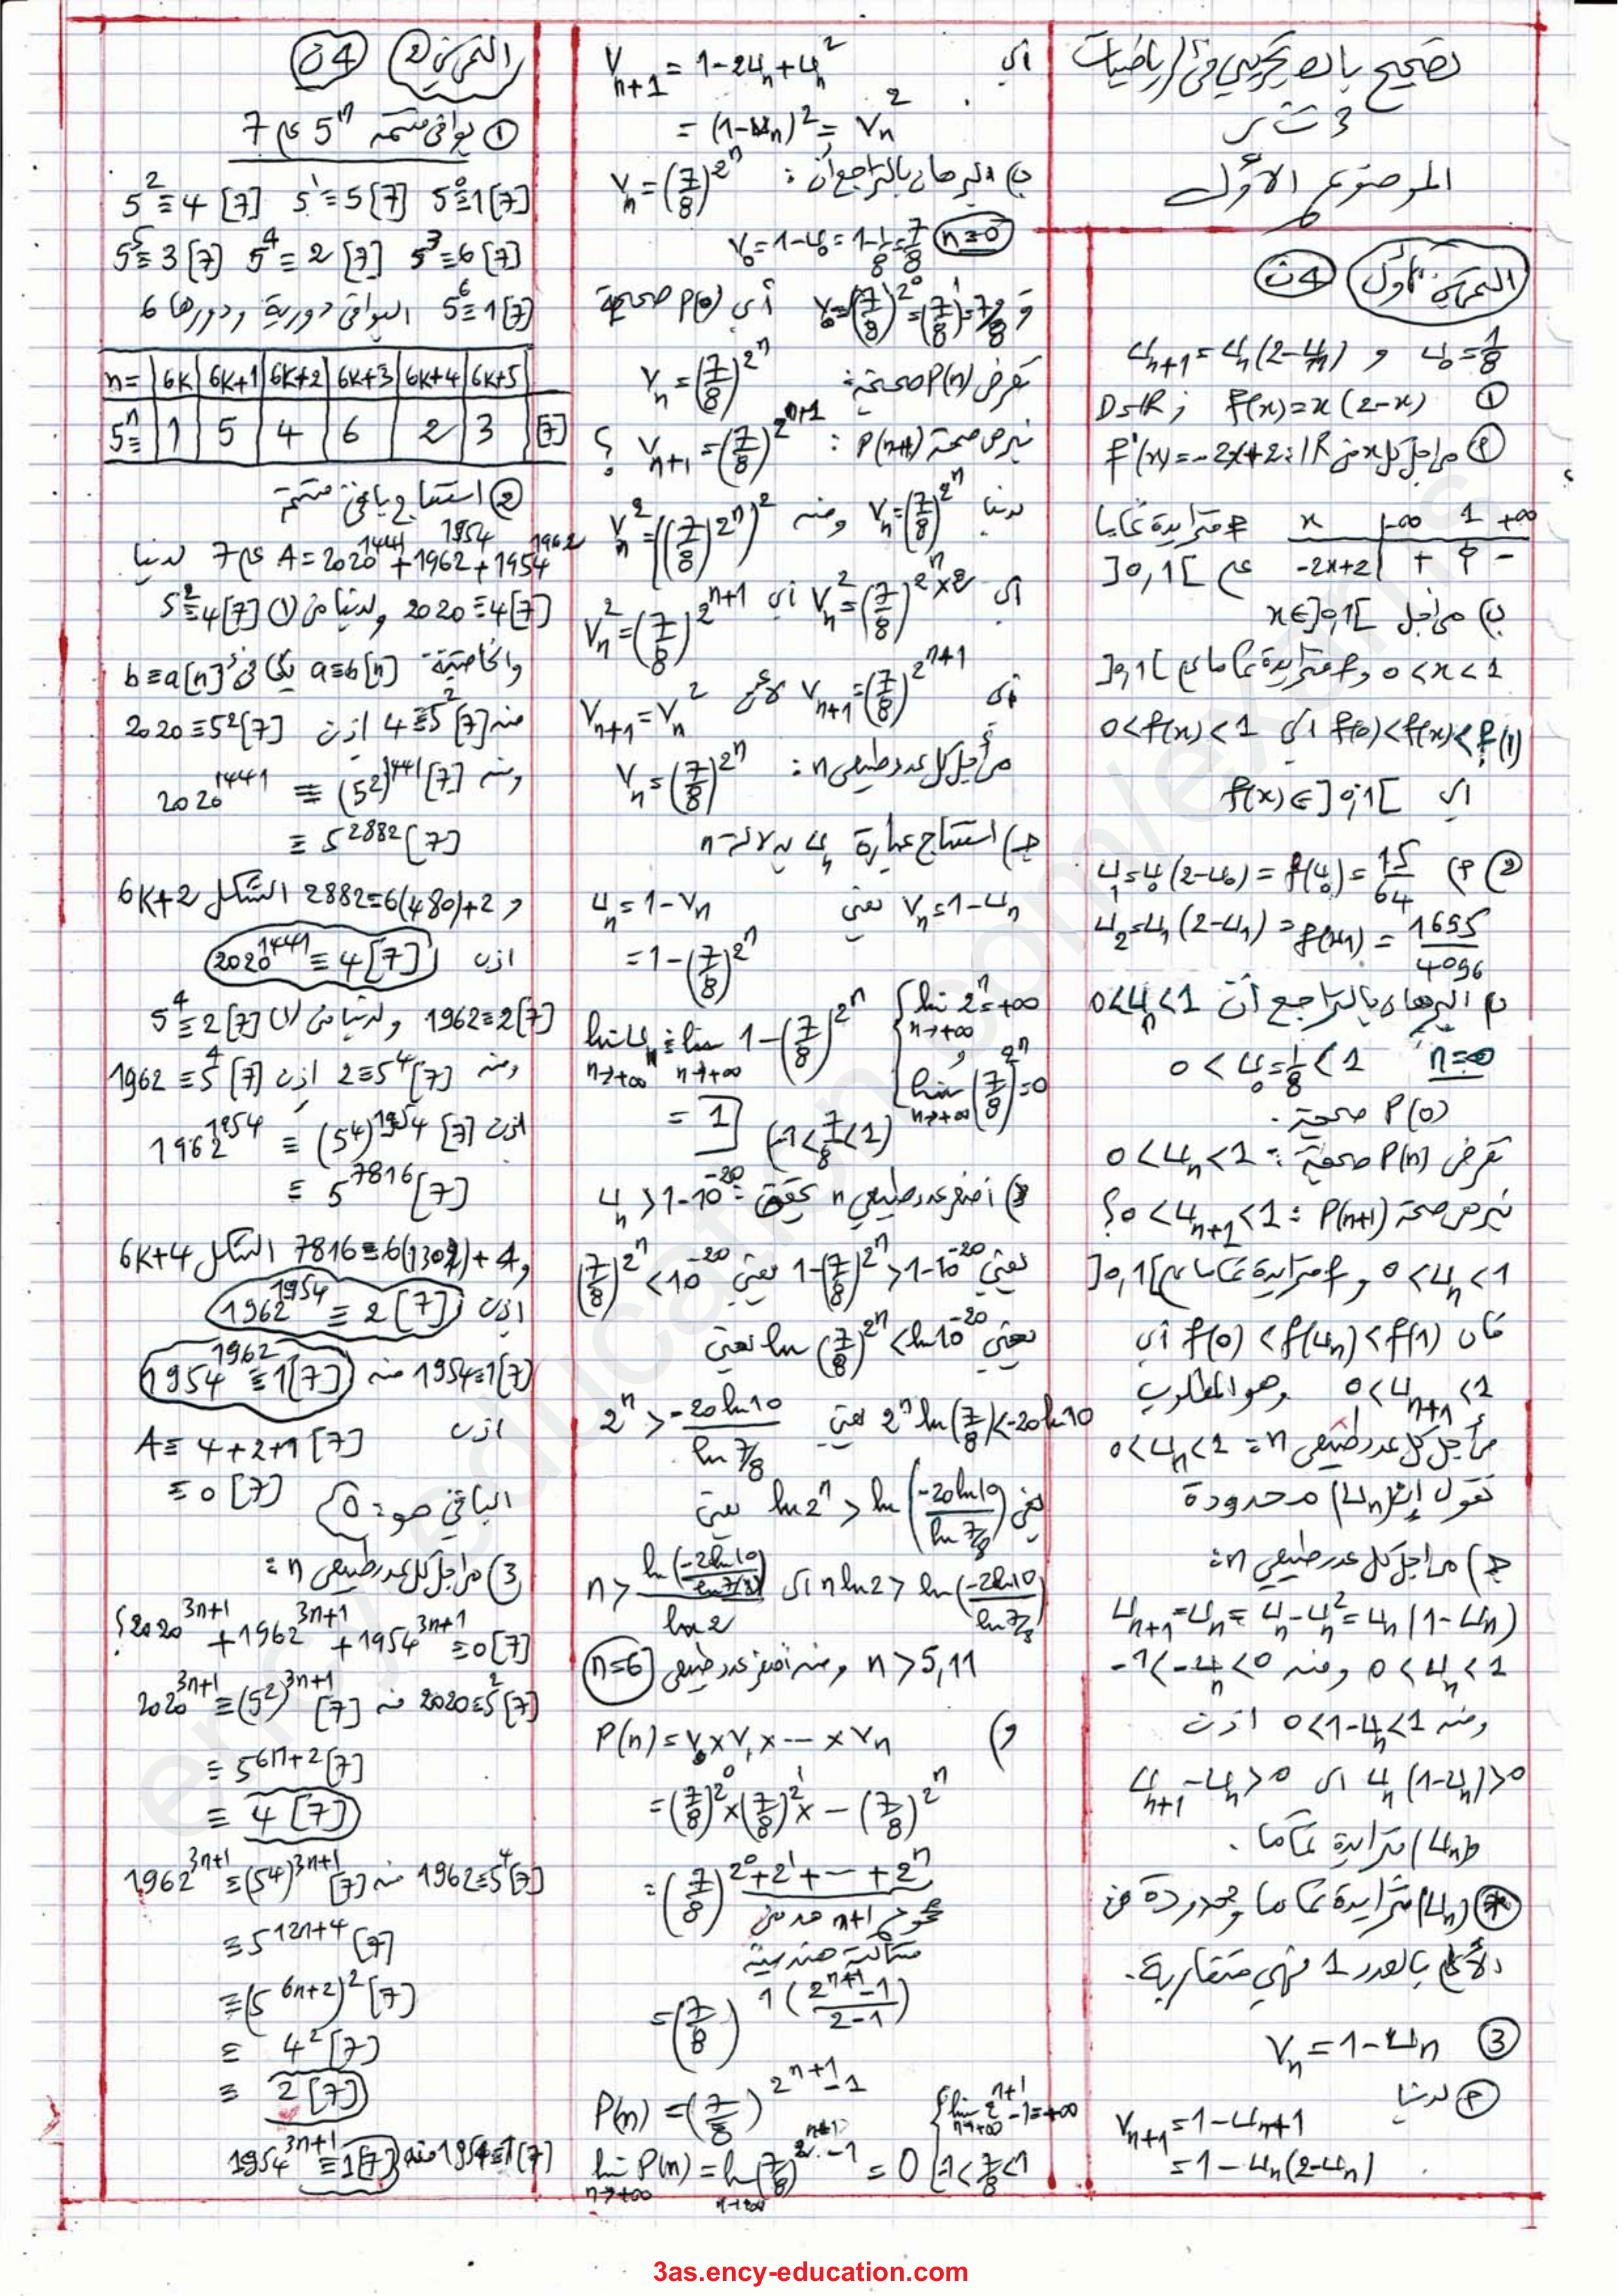 تصحيح باك تجريبي في الرياضيات
3 ت ر
الموضوع الأول
التمرين الأول 4ن
u_{n+1} = u_n(2-u_n) و u_0 = 1/8
① D=ℝ ; f(x)=x(2-x)
أ) من أجل كل x من ℝ: f'(x)=-2x+2
x | -∞ 1 +∞
-2x+2 | + 0 -
f متزايدة تماما
على ]0,1[
ب) من أجل x∈]0,1[
0<x<1 و f متزايدة تماما على ]0,1[
f(0)<f(x)<f(1) أي 0<f(x)<1
أي f(x)∈]0;1[
② أ) u_1=u_0(2-u_0)=f(u_0)=15/64
u_2=u_1(2-u_1)=f(u_1)=1695/4096
ب) البرهان بالتراجع أن 0<u_n<1
n=0 0<u_0=1/8<1
P(0) صحيحة.
نفرض P(n) صحيحة: 0<u_n<1
نبرهن صحة P(n+1): 0<u_{n+1}<1 ؟
0<u_n<1 و f متزايدة تماما على ]0,1[
فإن f(0)<f(u_n)<f(1) أي
0<u_{n+1}<1 وهو المطلوب
من أجل كل عدد طبيعي n: 0<u_n<1
نقول إن (u_n) محدودة
ج) من أجل كل عدد طبيعي n:
u_{n+1}-u_n=u_n-u_n²=u_n(1-u_n)
0<u_n<1 ومنه -1<-u_n<0
ومنه 0<1-u_n<1 إذن
u_n(1-u_n)>0 أي u_{n+1}-u_n>0
(u_n) متزايدة تماما.
(u_n) متزايدة تماما ومحدودة من
الأعلى بالعدد 1 فهي متقاربة.
③ v_n=1-u_n
أ) لدينا
v_{n+1}=1-u_{n+1}
=1-u_n(2-u_n)
أي v_{n+1}=1-2u_n+u_n²
=(1-u_n)²=v_n²
ب) البرهان بالتراجع أن: v_n=(7/8)^{2^n}
n=0 v_0=1-u_0=1-1/8=7/8
و v_0=(7/8)^{2^0}=(7/8)^1=7/8 أي P(0) صحيحة
نفرض P(n) صحيحة: v_n=(7/8)^{2^n}
نبرهن صحة P(n+1): v_{n+1}=(7/8)^{2^{n+1}} ؟
لدينا v_n=(7/8)^{2^n} ومنه v_n²=((7/8)^{2^n})²
أي v_n²=(7/8)^{2^n×2} أي v_n²=(7/8)^{2^{n+1}}
أي v_{n+1}=(7/8)^{2^{n+1}} لأن v_{n+1}=v_n²
من أجل كل عدد طبيعي n: v_n=(7/8)^{2^n}
ج) استنتاج عبارة u_n بدلالة n
v_n=1-u_n يعني u_n=1-v_n
=1-(7/8)^{2^n}
lim u_n = lim 1-(7/8)^{2^n} n→+∞ n→+∞
lim 2^n=+∞ n→+∞
lim (7/8)^{2^n}=0 n→+∞
= 1 (-1<7/8<1)
أصغر عدد طبيعي n يحقق: u_n>1-10^{-20}
يعني 1-(7/8)^{2^n}>1-10^{-20} يعني (7/8)^{2^n}<10^{-20}
يعني ln(7/8)^{2^n}<ln10^{-20} يعني
2^n ln(7/8)<-20ln10 يعني 2^n>-20ln10/ln7/8
يعني ln2^n>ln(-20ln10/ln7/8) يعني
n ln2>ln(-20ln10/ln7/8) أي n>ln(-20ln10/ln7/8)/ln2
n>5,11 ومنه أصغر عدد طبيعي n=6
و) P(n)=v_0×v_1×---×v_n
=(7/8)^{2^0}×(7/8)^{2^1}×-(7/8)^{2^n}
=(7/8)^{2^0+2^1+---+2^n}
مجموع n+1 حد من
متتالية هندسية
=(7/8)^{1((2^{n+1}-1)/(2-1))}
P(n)=(7/8)^{2^{n+1}-1}
lim 2^{n+1}-1=+∞ n→+∞
lim P(n)=lim(7/8)^{2^{n+1}-1}=0 -1<7/8<1
n→+∞ n→+∞
التمرين 2 4ن
① بواقي قسمة 5^n على 7
5^0≡1[7] 5^1≡5[7] 5^2≡4[7]
5^3≡6[7] 5^4≡2[7] 5^5≡3[7]
5^6≡1[7] البواقي دورية ودورها 6
n= | 6k | 6k+1 | 6k+2 | 6k+3 | 6k+4 | 6k+5
5^n≡ | 1 | 5 | 4 | 6 | 2 | 3 | [7]
② استنتاج باقي قسمة
A=2020^{1441}+1962^{1954}+1954^{1962} على 7 لدينا
2020≡4[7] ولدينا من (1) 5^2≡4[7]
والخاصية a≡b[n] يكافئ b≡a[n]
منه 4≡5^2[7] إذن 2020≡5^2[7]
ومنه 2020^{1441}≡(5^2)^{1441}[7]
≡5^{2882}[7]
و 2882=6(480)+2 الشكل 6k+2
إذن 2020^{1441}≡4[7]
1962≡2[7] ولدينا من (1) 5^4≡2[7]
ومنه 2≡5^4[7] إذن 1962≡5^4[7]
إذن 1962^{1954}≡(5^4)^{1954}[7]
≡5^{7816}[7]
و 7816=6(1302)+4 الشكل 6k+4
إذن 1962^{1954}≡2[7]
1954≡1[7] منه 1954^{1962}≡1[7]
إذن A≡4+2+1[7]
≡0[7]
الباقي هو: 0
3) من أجل كل عدد طبيعي n:
2020^{3n+1}+1962^{3n+1}+1954^{3n+1}≡0[7] ؟
2020≡5^2[7] منه 2020^{3n+1}≡(5^2)^{3n+1}[7]
≡5^{6n+2}[7]
≡4[7]
1962≡5^4[7] منه 1962^{3n+1}≡(5^4)^{3n+1}[7]
≡5^{12n+4}[7]
≡(5^{6n+2})²[7]
≡4²[7]
≡2[7]
1954≡1[7] منه 1954^{3n+1}≡1[7]
3as.ency-education.com
ency-education.com/exams